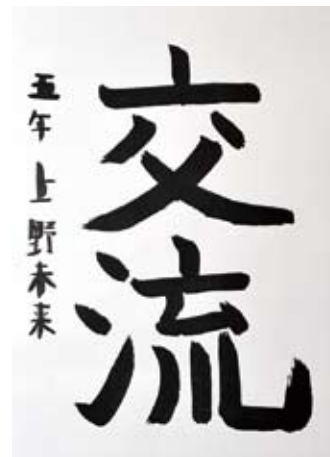 交流
五年 上野未来